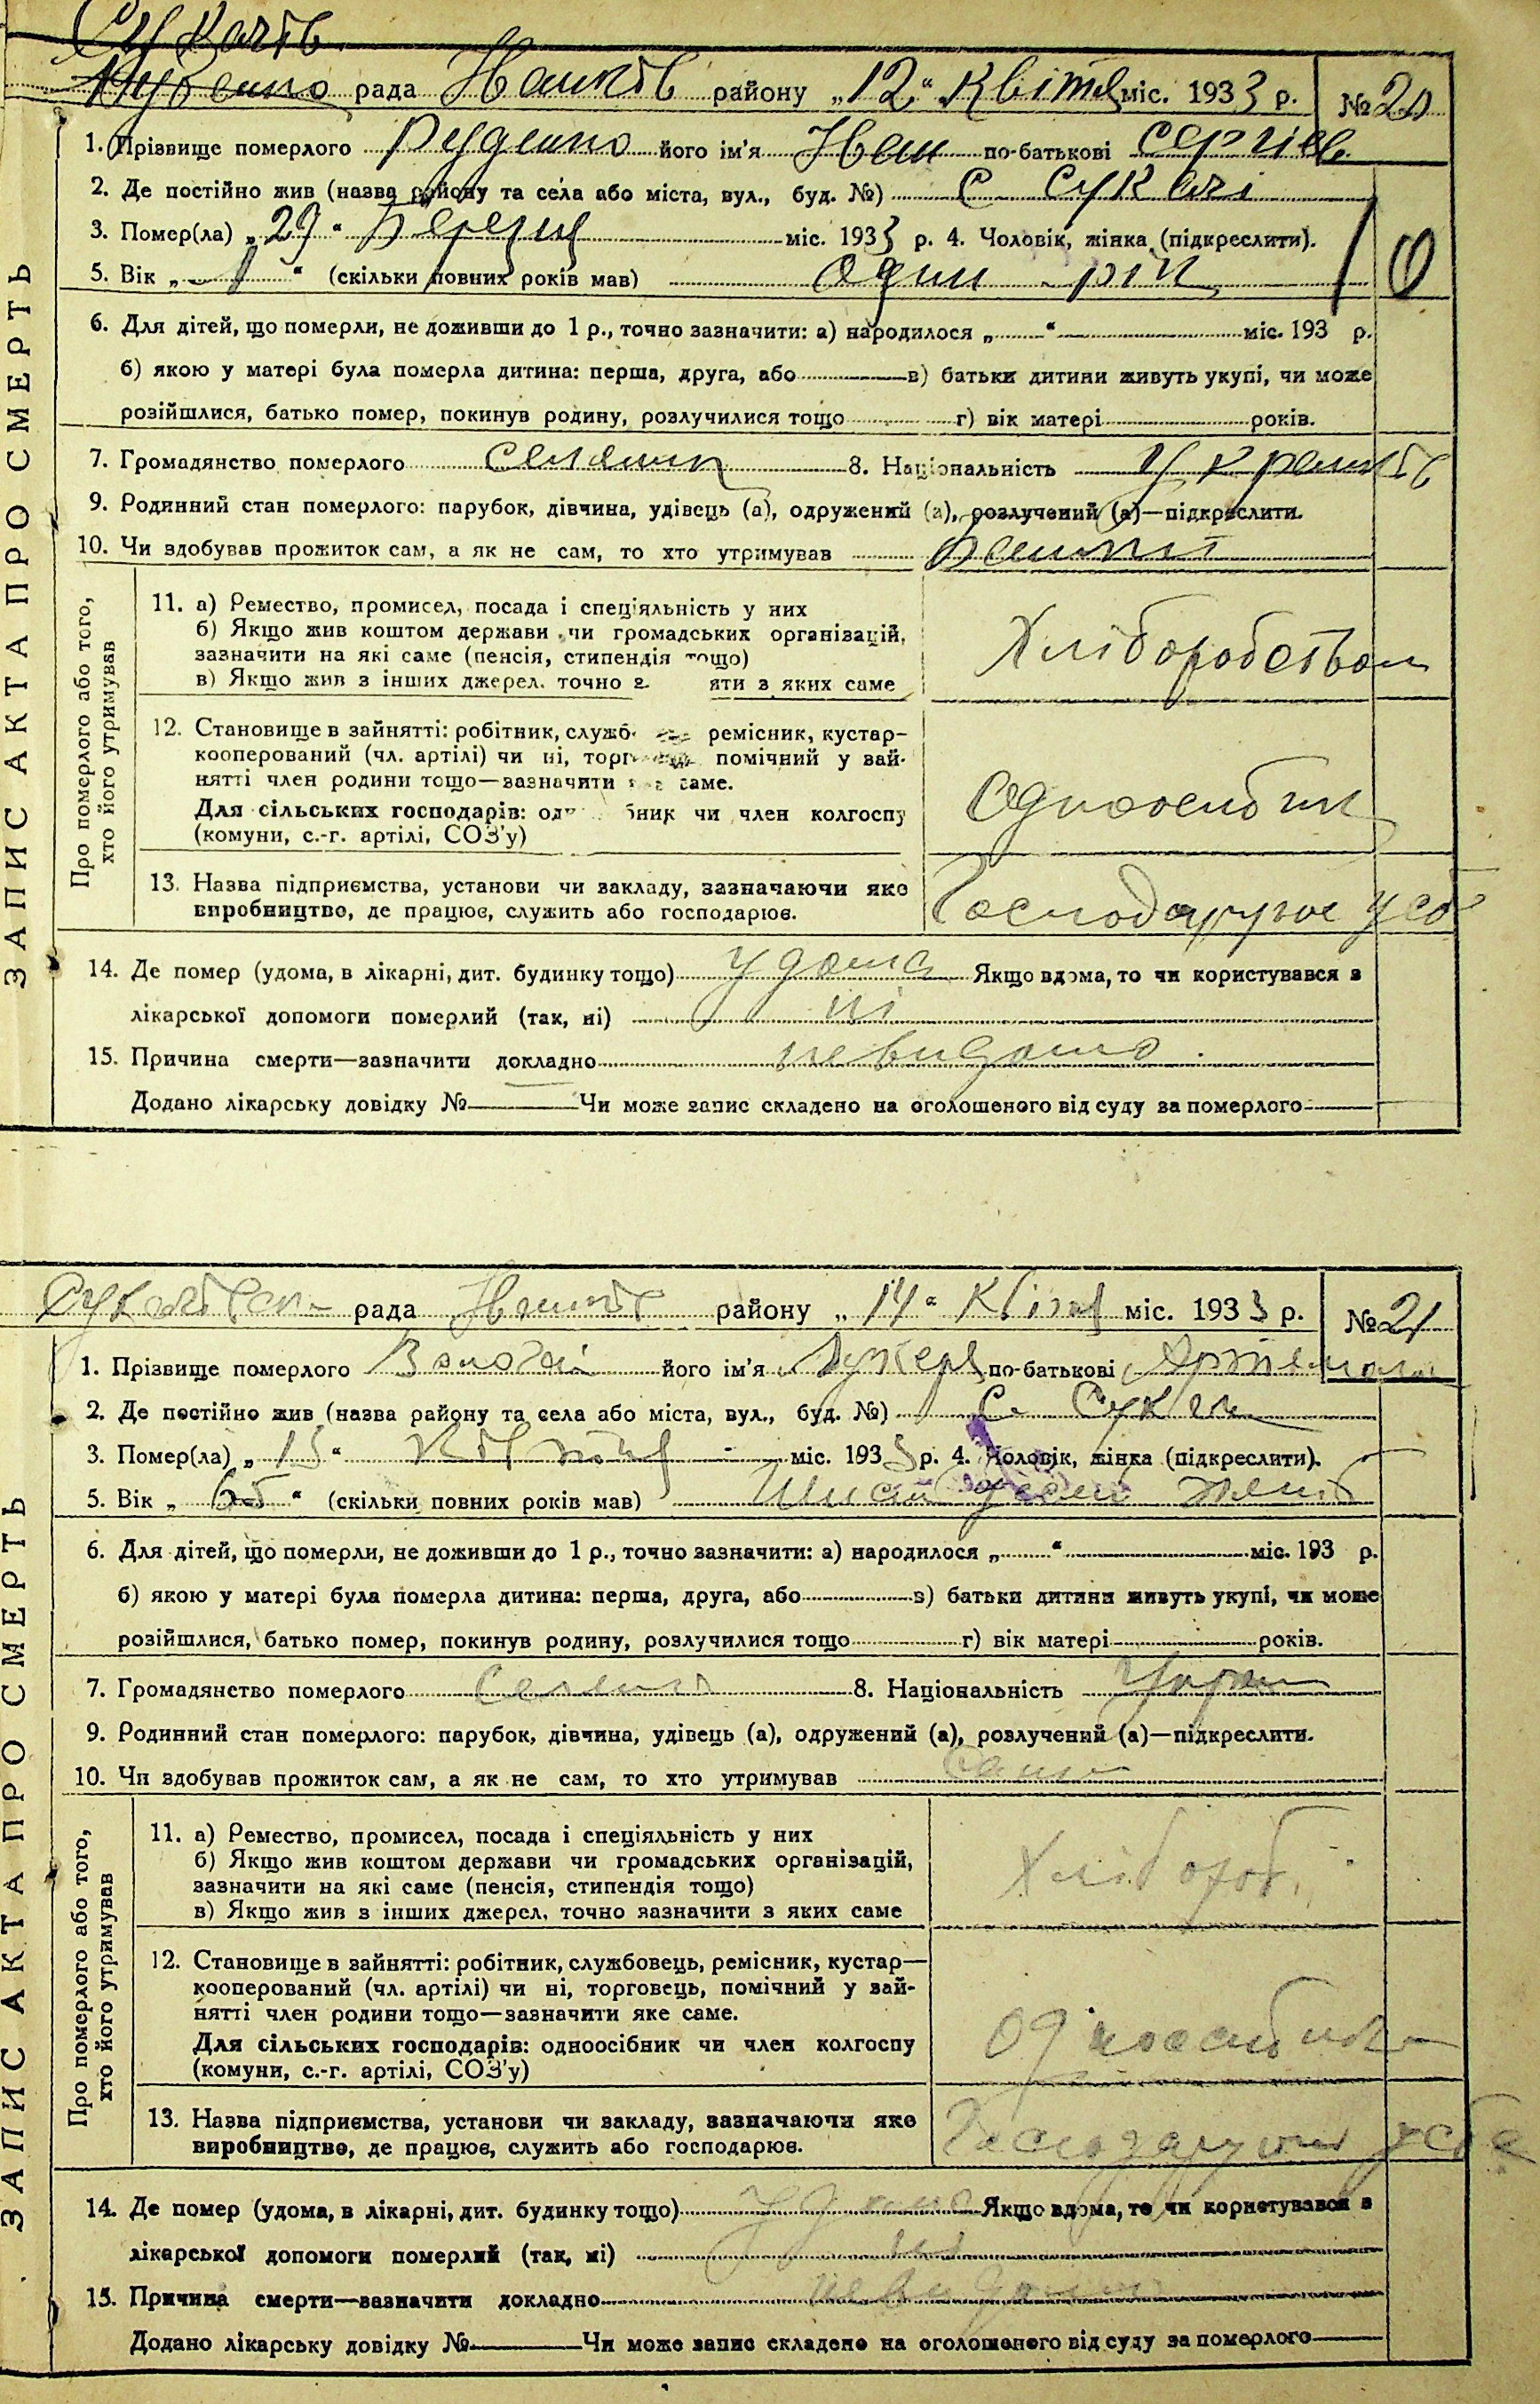 Сукачів
рада Іванків району „12“ Квітня міс. 1933 р. № 20
1. Прізвище померлого Руденко його ім'я Іван по-батькові Сергієв
2. Де постійно жив (назва району та села або міста, вул., буд. №) С Сукачі
3. Помер(ла) „29“ Березня міс. 1933 р. 4. Чоловік, жінка (підкреслити).
5. Вік „1“ (скільки повних років мав) один рік
6. Для дітей, що померли, не доживши до 1 р., точно зазначити: а) народилося „ “ міс. 193 р.
б) якою у матері була померла дитина: перша, друга, або в) батьки дитини живуть укупі, чи може
розійшлися, батько помер, покинув родину, розлучилися тощо г) вік матері років.
7. Громадянство померлого селянин 8. Національність Українець
9. Родинний стан померлого: парубок, дівчина, удівець (а), одружений (а), розлучений (а)—підкреслити.
10. Чи здобував прожиток сам, а як не сам, то хто утримував
ЗАПИС АКТА ПРО СМЕРТЬ
Про померлого або того,
хто його утримував
11. а) Ремество, промисел, посада і спеціяльність у них
б) Якщо жив коштом держави чи громадських організацій,
зазначити на які саме (пенсія, стипендія тощо)
в) Якщо жив з інших джерел, точно з яти з яких саме
Хліборобством
12. Становище в зайнятті: робітник, служб ремісник, кустар-
кооперований (чл. артілі) чи ні, торг помічний у зай-
нятті член родини тощо—зазначити саме.
Для сільських господарів: од бник чи член колгоспу
(комуни, с.-г. артілі, СОЗ'у)
Одноосібник
13. Назва підприємства, установи чи закладу, зазначаючи яке
виробництво, де працює, служить або господарює.
Господарює у себе
14. Де помер (удома, в лікарні, дит. будинку тощо) удома Якщо вдома, то чи користувався з
лікарської допомоги померлий (так, ні) ні
15. Причина смерти—зазначити докладно невидомо
Додано лікарську довідку № Чи може запис складено на оголошеного від суду за померлого
рада Іванків району „14“ Квітня міс. 1933 р. № 21
1. Прізвище померлого його ім'я по-батькові
2. Де постійно жив (назва району та села або міста, вул., буд. №) С. Сукачі
3. Помер(ла) „13“ Квітня міс. 1933 р. 4. Чоловік, жінка (підкреслити).
5. Вік „65“ (скільки повних років мав)
6. Для дітей, що померли, не доживши до 1 р., точно зазначити: а) народилося „ “ міс. 193 р.
б) якою у матері була померла дитина: перша, друга, або в) батьки дитини живуть укупі, чи може
розійшлися, батько помер, покинув родину, розлучилися тощо г) вік матері років.
7. Громадянство померлого 8. Національність Україн
9. Родинний стан померлого: парубок, дівчина, удівець (а), одружений (а), розлучений (а)—підкреслити.
10. Чи здобував прожиток сам, а як не сам, то хто утримував
ЗАПИС АКТА ПРО СМЕРТЬ
Про померлого або того,
хто його утримував
11. а) Ремество, промисел, посада і спеціяльність у них
б) Якщо жив коштом держави чи громадських організацій,
зазначити на які саме (пенсія, стипендія тощо)
в) Якщо жив з інших джерел, точно зазначити з яких саме
Хлібороб.
12. Становище в зайнятті: робітник, службовець, ремісник, кустар—
кооперований (чл. артілі) чи ні, торговець, помічний у зай-
нятті член родини тощо—зазначити яке саме.
Для сільських господарів: одноосібник чи член колгоспу
(комуни, с.-г. артілі, СОЗ'у)
13. Назва підприємства, установи чи закладу, зазначаючи яке
виробництво, де працює, служить або господарює.
у себе
14. Де помер (удома, в лікарні, дит. будинку тощо) удома Якщо вдома, то чи користувався з
лікарської допомоги померлий (так, ні) ні
15. Причина смерти—зазначити докладно невидомо
Додано лікарську довідку № Чи може запис складено на оголошеного від суду за померлого